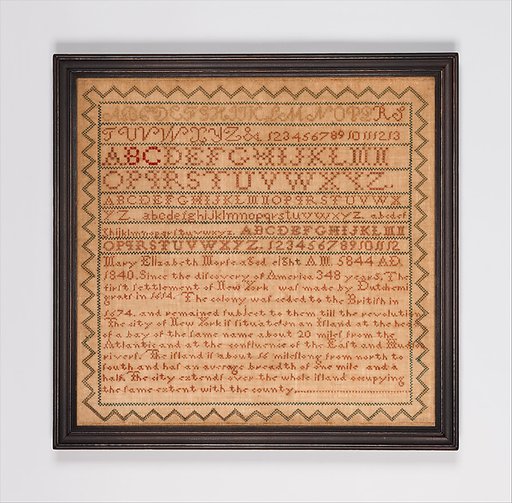 ABCDEFGHIJKLMNOPQRS
TUVWXYZ& 12345678910111213
ABCDEFGHIJKLMN
OPQRSTUVWXYZ
ABCDEFGHIJKLMNOPQRSTUVWX
YZ abcdefghijklmnopqrstuvwxyz abcdef
ghijklmnopqrstuvwxyz ABCDEFGHIJKLMN
OPQRSTUVWXYZ 123456789101112
Mary Elizabeth aged eight A.M. 5844 A.D.
1840. Since the discovery of America 348 years. The
first settlement of New York was made by Dutchemi
grats in 1614. The colony was ceded to the British in
1674. and remained subject to them till the revolution
The city of New York is situated on an Island at the hea
of a bay of the same name about 20 miles from the
Atlantic and at the confluence of the East and Hudson
rivers. The island is about 15 miles long from north to
south and has an average breadth of one mile and a
half. The city extends over the whole island occupying
the same extent with the county.